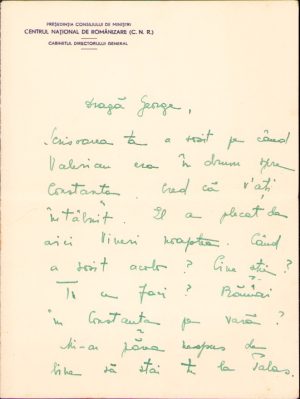 PREȘEDINȚIA CONSILIULUI DE MINIȘTRI
CENTRUL NAȚIONAL DE ROMÂNIZARE (C. N. R.)
CABINETUL DIRECTORULUI GENERAL
Dragă George,
Scrisoarea ta a sosit pe când
Valerian era în drum spre
Constanta. Cred că v'ați
întâlnit. El a plecat de
aici Vineri noaptea. Când
a sosit acolo? Cine știe?
Tu ce faci? Rămâi
în Constanta pe vară?
Mi-ar părea nespus de
bine să stai tu la Palas.